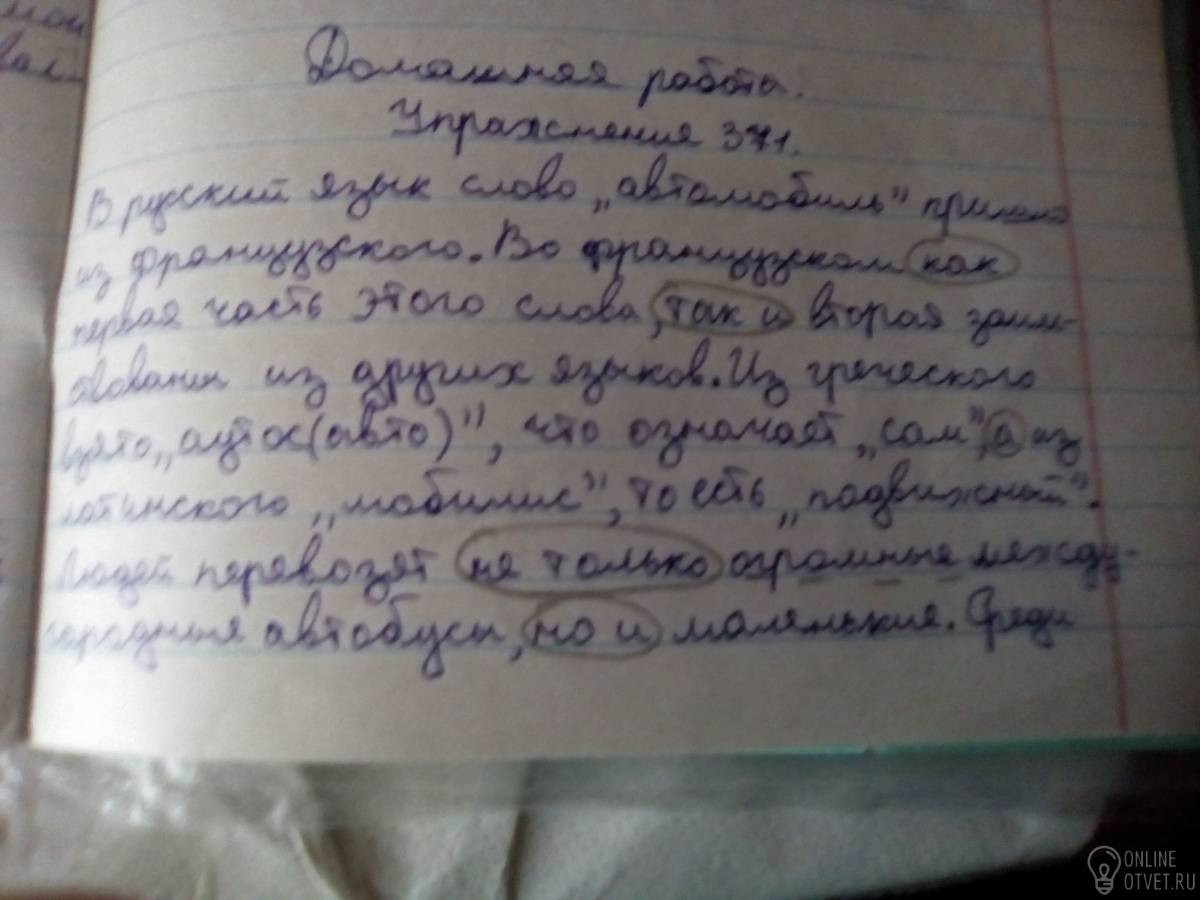 мой
вал
Домашняя работа.
Упражнения 371.
В русский язык слово „автомобиль" пришло
из французского. Во французском как
первая часть этого слова, так и вторая заим-
ствованы из других языков. Из греческого
взято „аутос(авто)", что означает „сам", а из
латинского „мобилис", то есть „подвижный".
Людей перевозят не только огромные между-
народные автобусы, но и маленькие. Среди
ONLINE
OTVET.RU